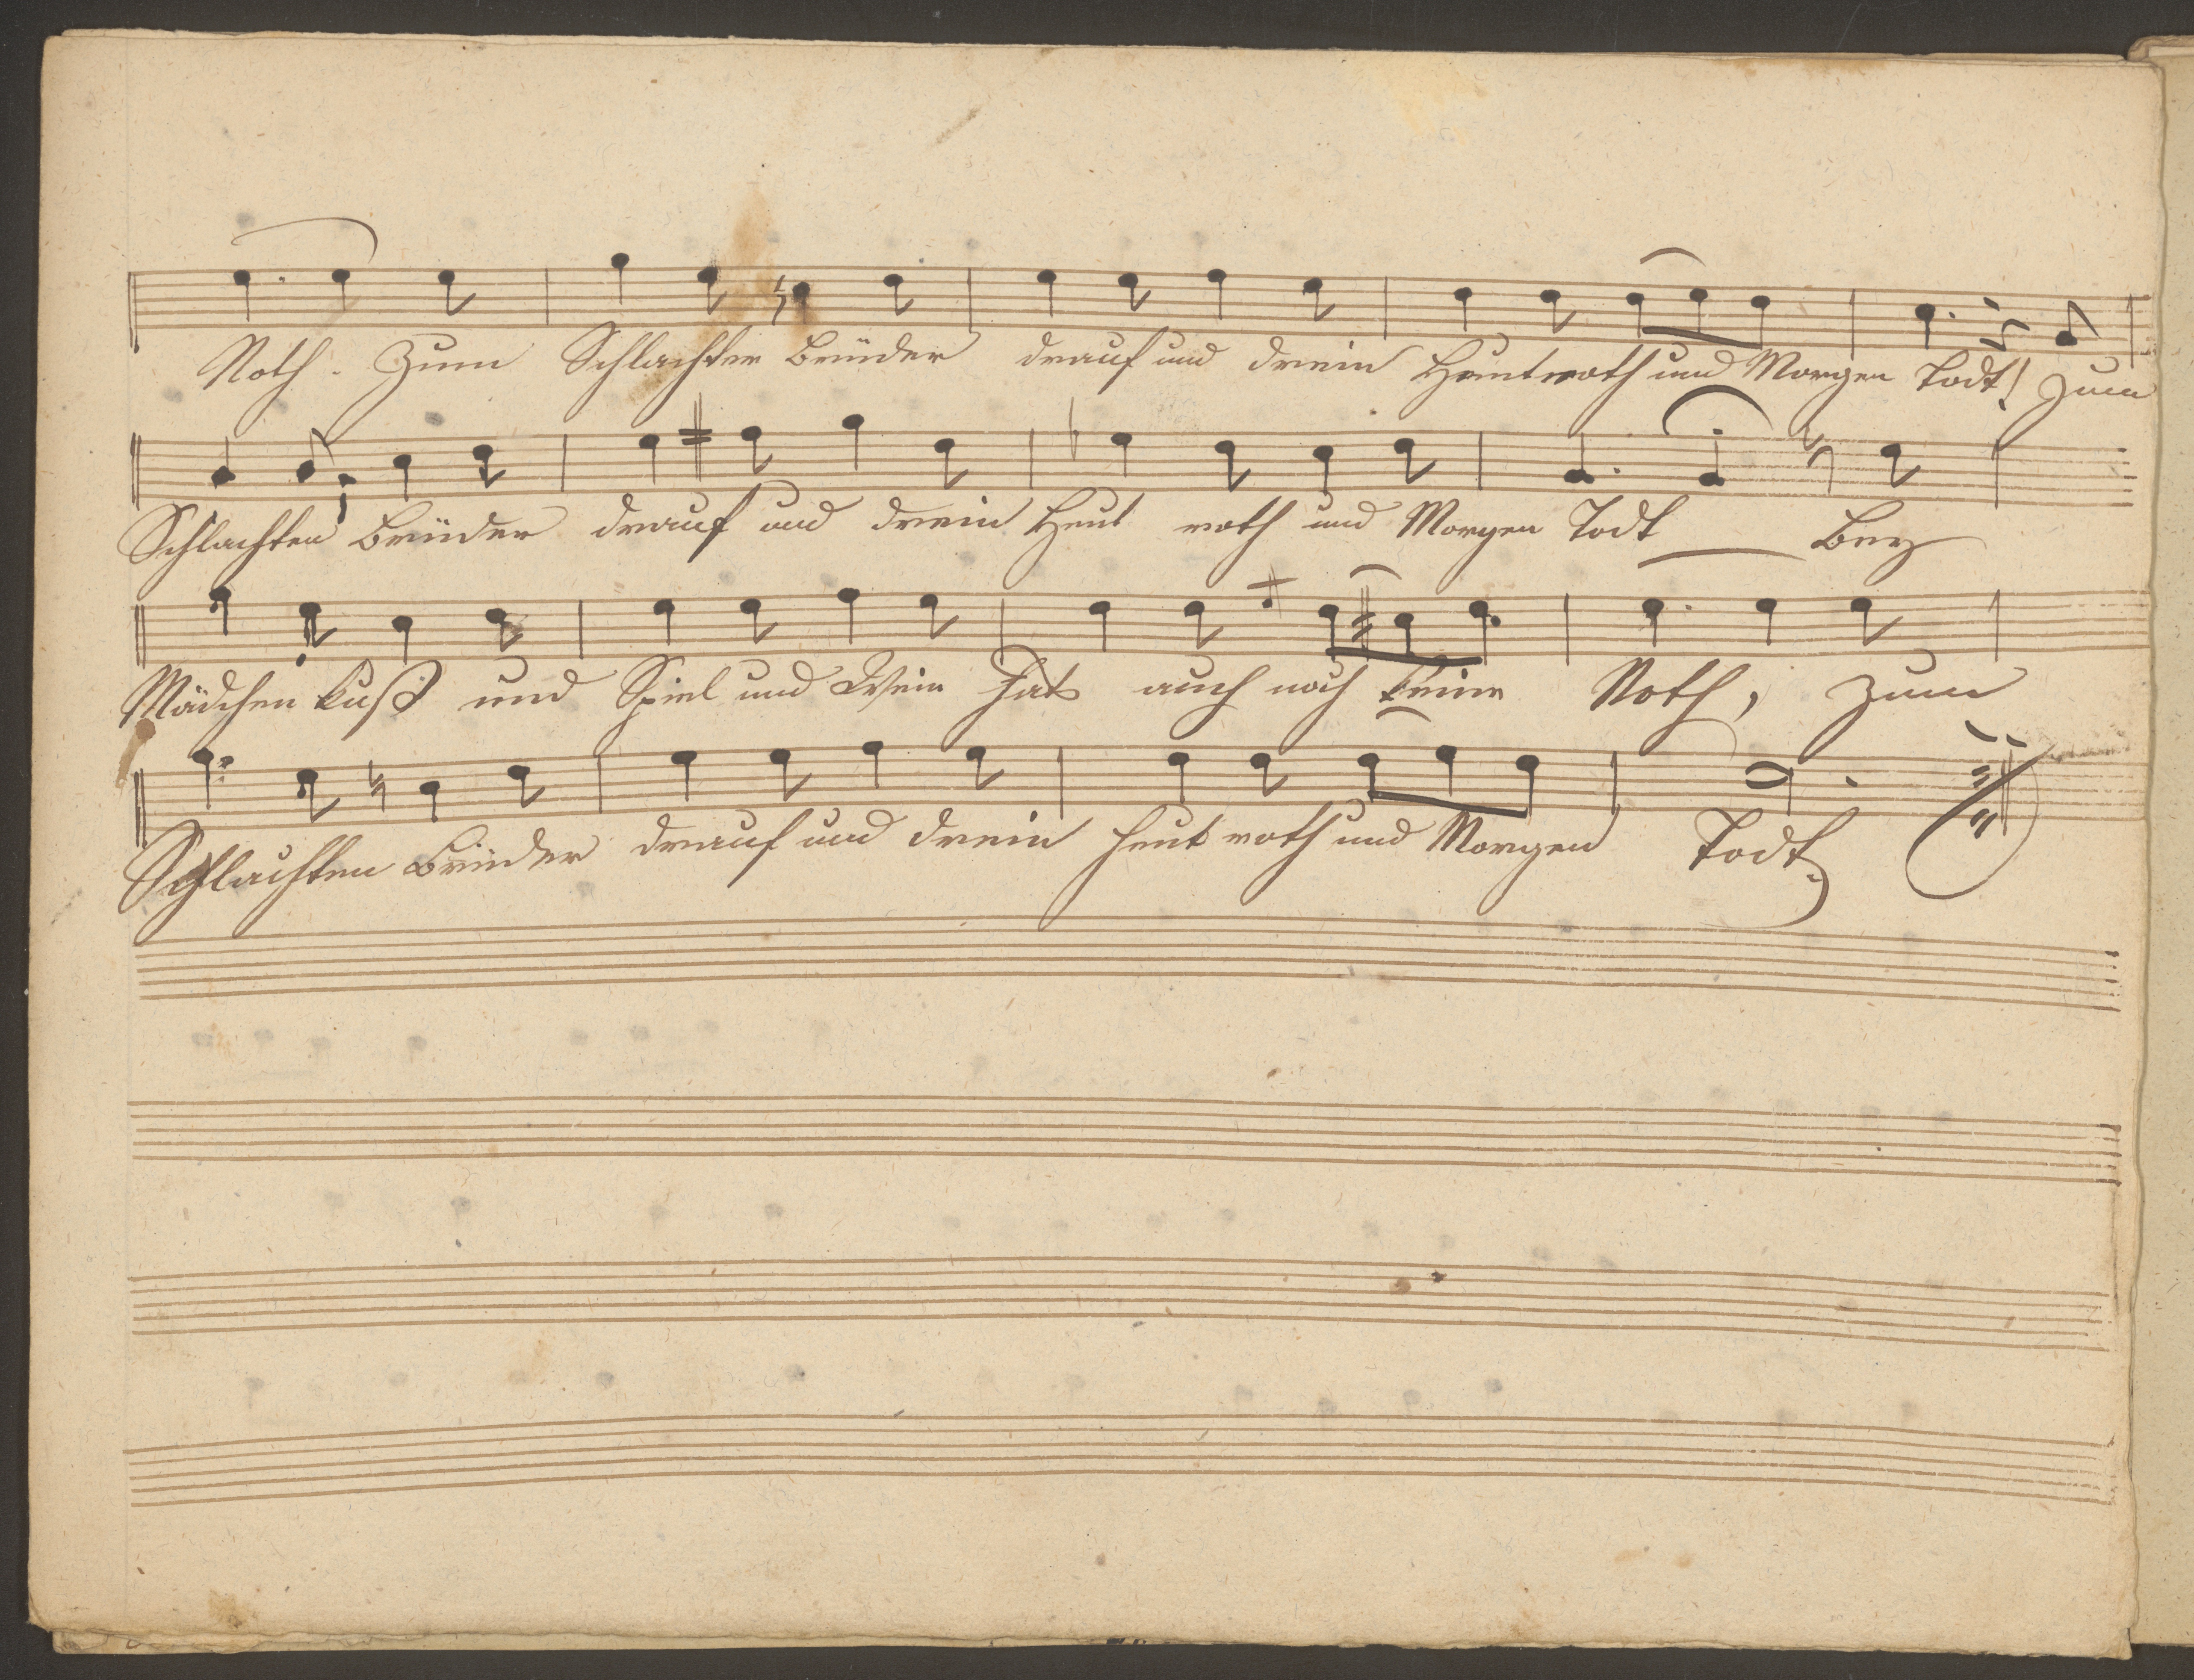 Noth. Zum Schlachten Brüder drauf und drein Heut roth und Morgen Todt! Zum
Schlachten Brüder drauf und drein Heut roth und Morgen Todt Bey
Mädchen kuß und Spiel und Wein hat auch noch keine Noth, Zum
Schlachten Brüder drauf und drein heut roth und Morgen Todt.